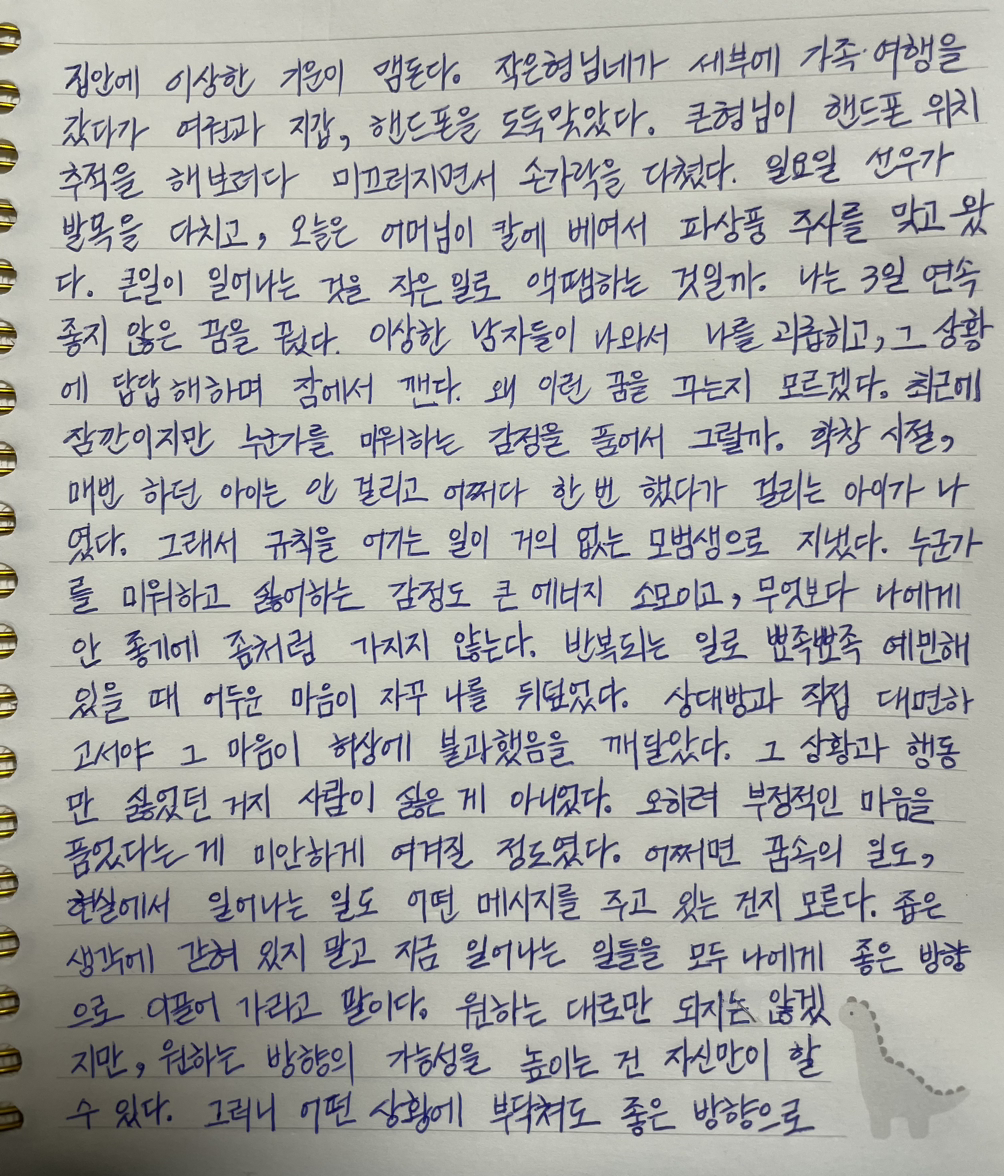 집안에 이상한 기운이 맴돈다. 작은형님네가 세부에 가족 여행을
갔다가 여권과 지갑, 핸드폰을 도둑맞았다. 큰형님이 핸드폰 위치
추적을 해보려다 미끄러지면서 손가락을 다쳤다. 일요일 선우가
발목을 다치고, 오늘은 어머님이 칼에 베여서 파상풍 주사를 맞고 왔
다. 큰일이 일어나는 것을 작은 일로 액땜하는 것일까. 나는 3일 연속
좋지 않은 꿈을 꿨다. 이상한 남자들이 나와서 나를 괴롭히고, 그 상황
에 답답해하며 잠에서 깬다. 왜 이런 꿈을 꾸는지 모르겠다. 최근에
잠깐이지만 누군가를 미워하는 감정을 품어서 그럴까. 학창 시절,
매번 하던 아이는 안 걸리고 어쩌다 한 번 했다가 걸리는 아이가 나
였다. 그래서 규칙을 어기는 일이 거의 없는 모범생으로 지냈다. 누군가
를 미워하고 싫어하는 감정도 큰 에너지 소모이고, 무엇보다 나에게
안 좋기에 좀처럼 가지지 않는다. 반복되는 일로 뾰족뾰족 예민해
있을 때 어두운 마음이 자꾸 나를 뒤덮었다. 상대방과 직접 대면하
고서야 그 마음이 허상에 불과했음을 깨달았다. 그 상황과 행동
만 싫었던 거지 사람이 싫은 게 아니었다. 오히려 부정적인 마음을
품었다는 게 미안하게 여겨질 정도였다. 어쩌면 꿈속의 일도,
현실에서 일어나는 일도 어떤 메시지를 주고 있는 건지 모른다. 좁은
생각에 갇혀 있지 말고 지금 일어나는 일들을 모두 나에게 좋은 방향
으로 이끌어 가라고 말이다. 원하는 대로만 되지는 않겠
지만, 원하는 방향의 가능성을 높이는 건 자신만이 할
수 있다. 그러니 어떤 상황에 부닥쳐도 좋은 방향으로